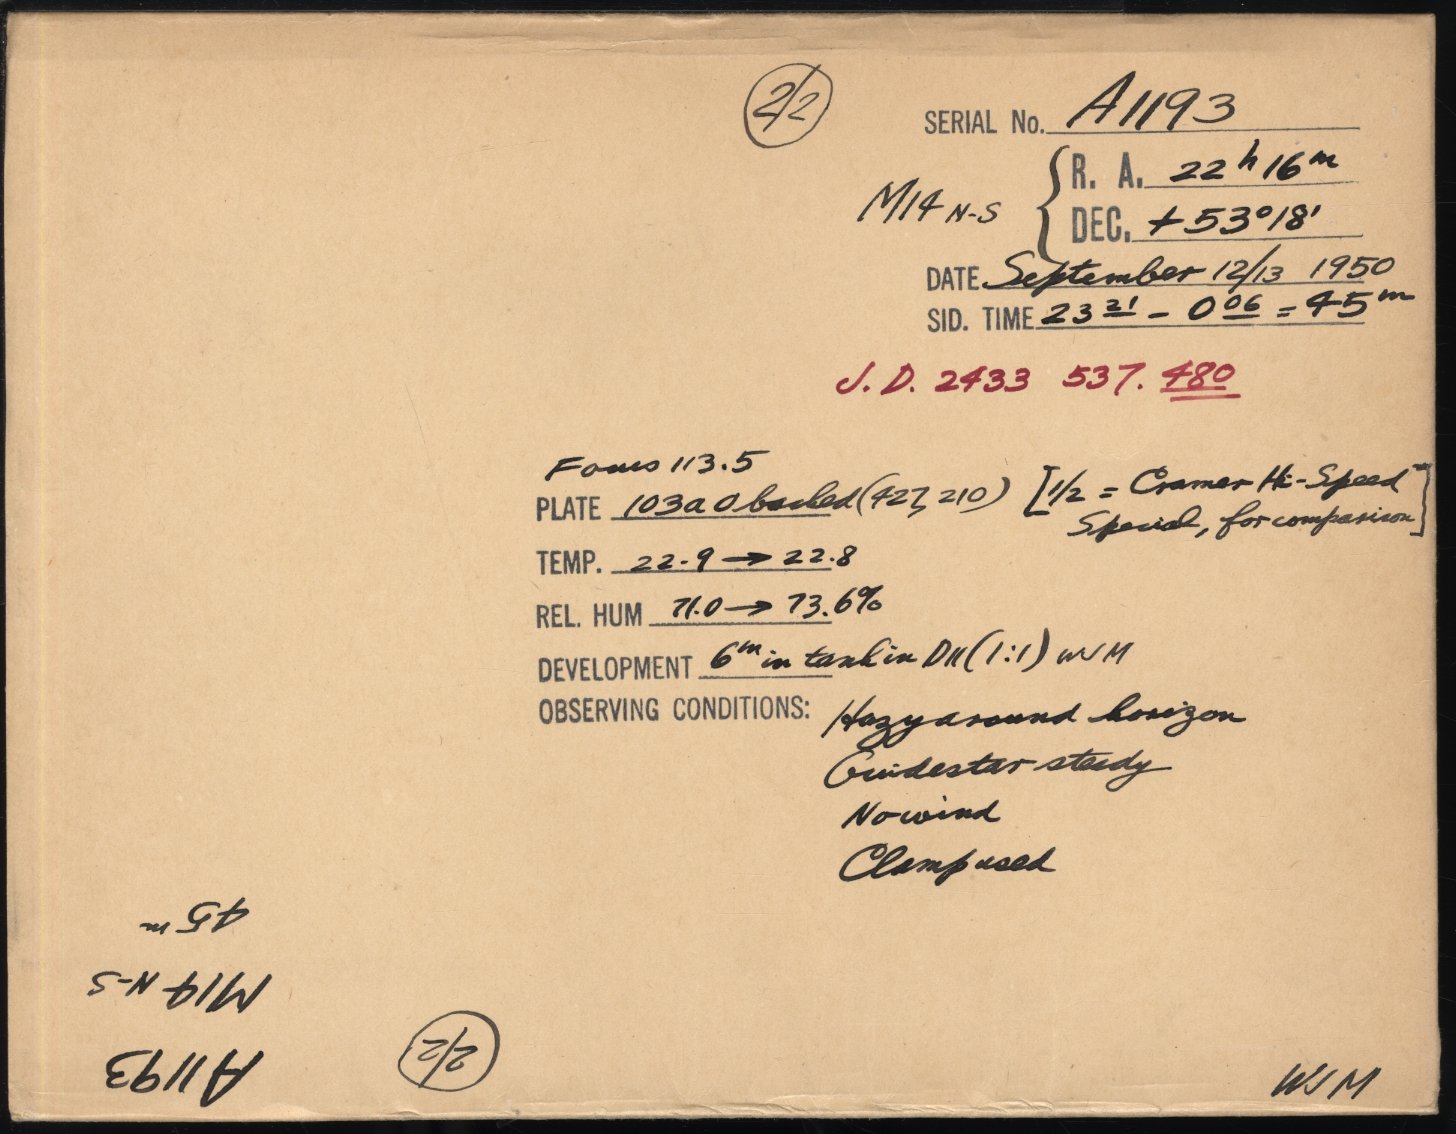 2/2
SERIAL No. A1193
R. A. 22h 16m
M14 N-S
DEC. +53°18'
DATE September 12/13 1950
SID. TIME 23 21 - 0 06 = 45m
J. D. 2433 537. 480
Focus 113.5
PLATE 103a O backed (427, 210) [1/2 = Cramer Hi-Speed
Special, for comparison]
TEMP. 22.9 → 22.8
REL. HUM 71.0 → 73.6%
DEVELOPMENT 6m in tank in D11 (1:1) WJM
OBSERVING CONDITIONS: Hazy around horizon
Guidestar steady
No wind
Clamp used
45m
M14 N-S
A1193
2/2
WJM